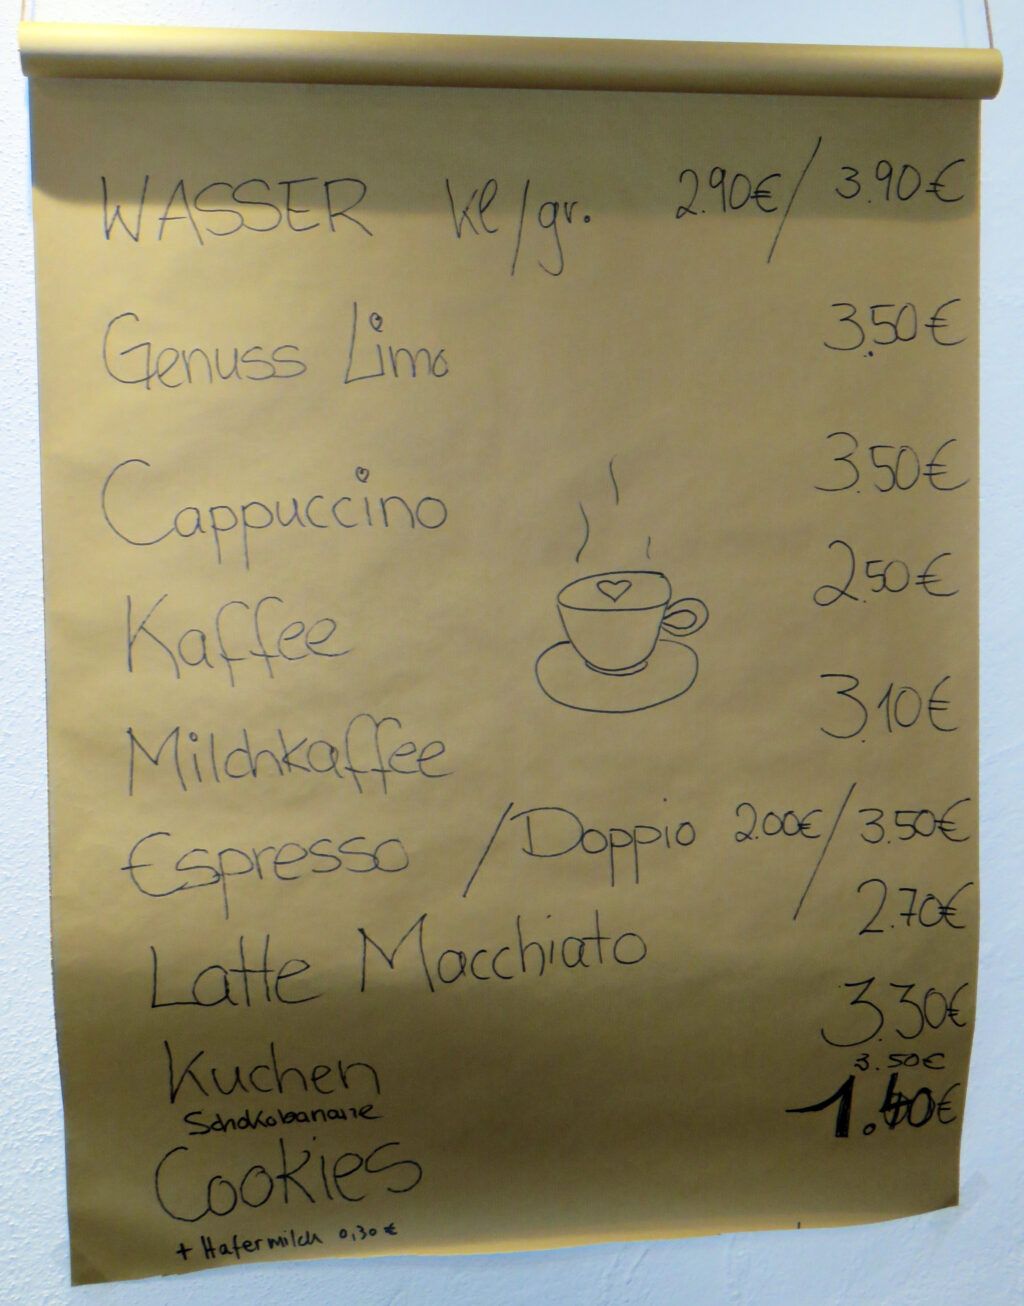 WASSER kl/gr. 2.90€/3.90€
Genuss Limo 3.50€
Cappuccino 3.50€
Kaffee 2.50€
Milchkaffee 3.10€
Espresso / Doppio 2.00€/3.50€
Latte Macchiato 2.70€
Kuchen 3.30€
Schokobanane 3.50€
Cookies 1.40€
+ Hafermilch 0,30€